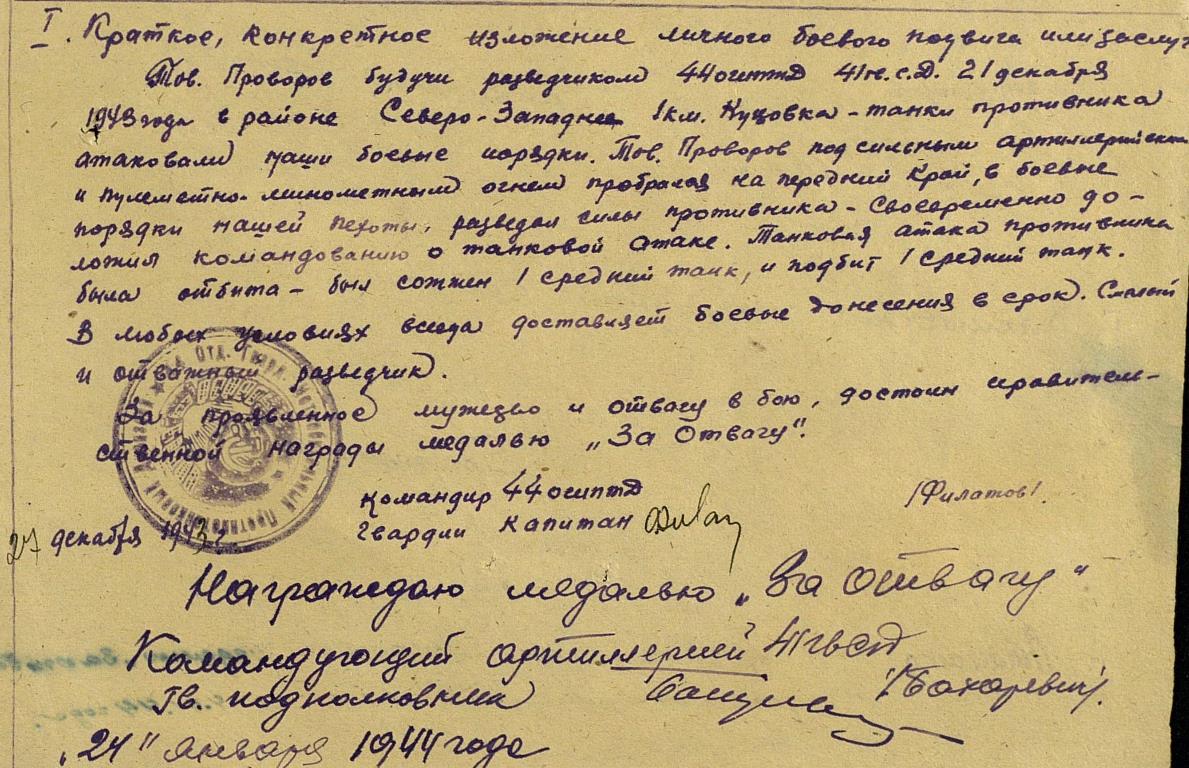 I. Краткое, конкретное изложение личного боевого подвига или заслуг
Тов. Проворов будучи разведчиком 44 огиптд 41 гв. с.д. 21 декабря
1943 года в районе Северо-Западнее 1 км. Нуцовка - танки противника
атаковали наши боевые порядки. Тов. Проворов под сильным артиллерийским
и пулеметно-минометным огнем пробрался на передний край, в боевые
порядки нашей пехоты, разведал силы противника - своевременно до-
ложил командованию о танковой атаке. Танковая атака противника
была отбита - был сожжен 1 средний танк, и подбит 1 средний танк.
В любых условиях всегда доставляет боевые донесения в срок. Смелый
и отважный разведчик.
За проявленное мужество и отвагу в бою, достоин правитель-
ственной награды медалью „За Отвагу".
Командир 44 огиптд
Гвардии капитан /Филатов/.
27 декабря 1943 г.
Награждаю медалью „За отвагу"
Командующий артиллерией 41 гвсд
Гв. подполковник /Бахаревич/.
„24" января 1944 года